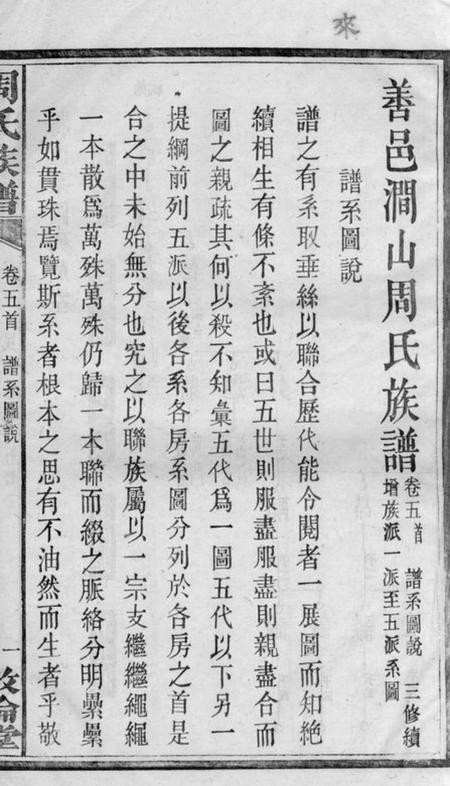 來
善邑澗山周氏族譜 卷五首 譜系圖說 三修續
增族派一派至五派系圖
譜系圖說
譜之有系取垂絲以聯合歷代能令閱者一展圖而知絶
續相生有條不紊也或曰五世則服盡服盡則親盡合而
圖之親疏其何以殺不知彙五代爲一圖五代以下另一
提綱前列五派以後各系各房系圖分列於各房之首是
合之中未始無分也究之以聯族屬以一宗支繼繼繩繩
一本散爲萬殊萬殊仍歸一本聯而綴之脈絡分明纍纍
乎如貫珠焉覽斯系者根本之思有不油然而生者乎敬
周氏族譜 卷五首 譜系圖說 一 敦倫堂